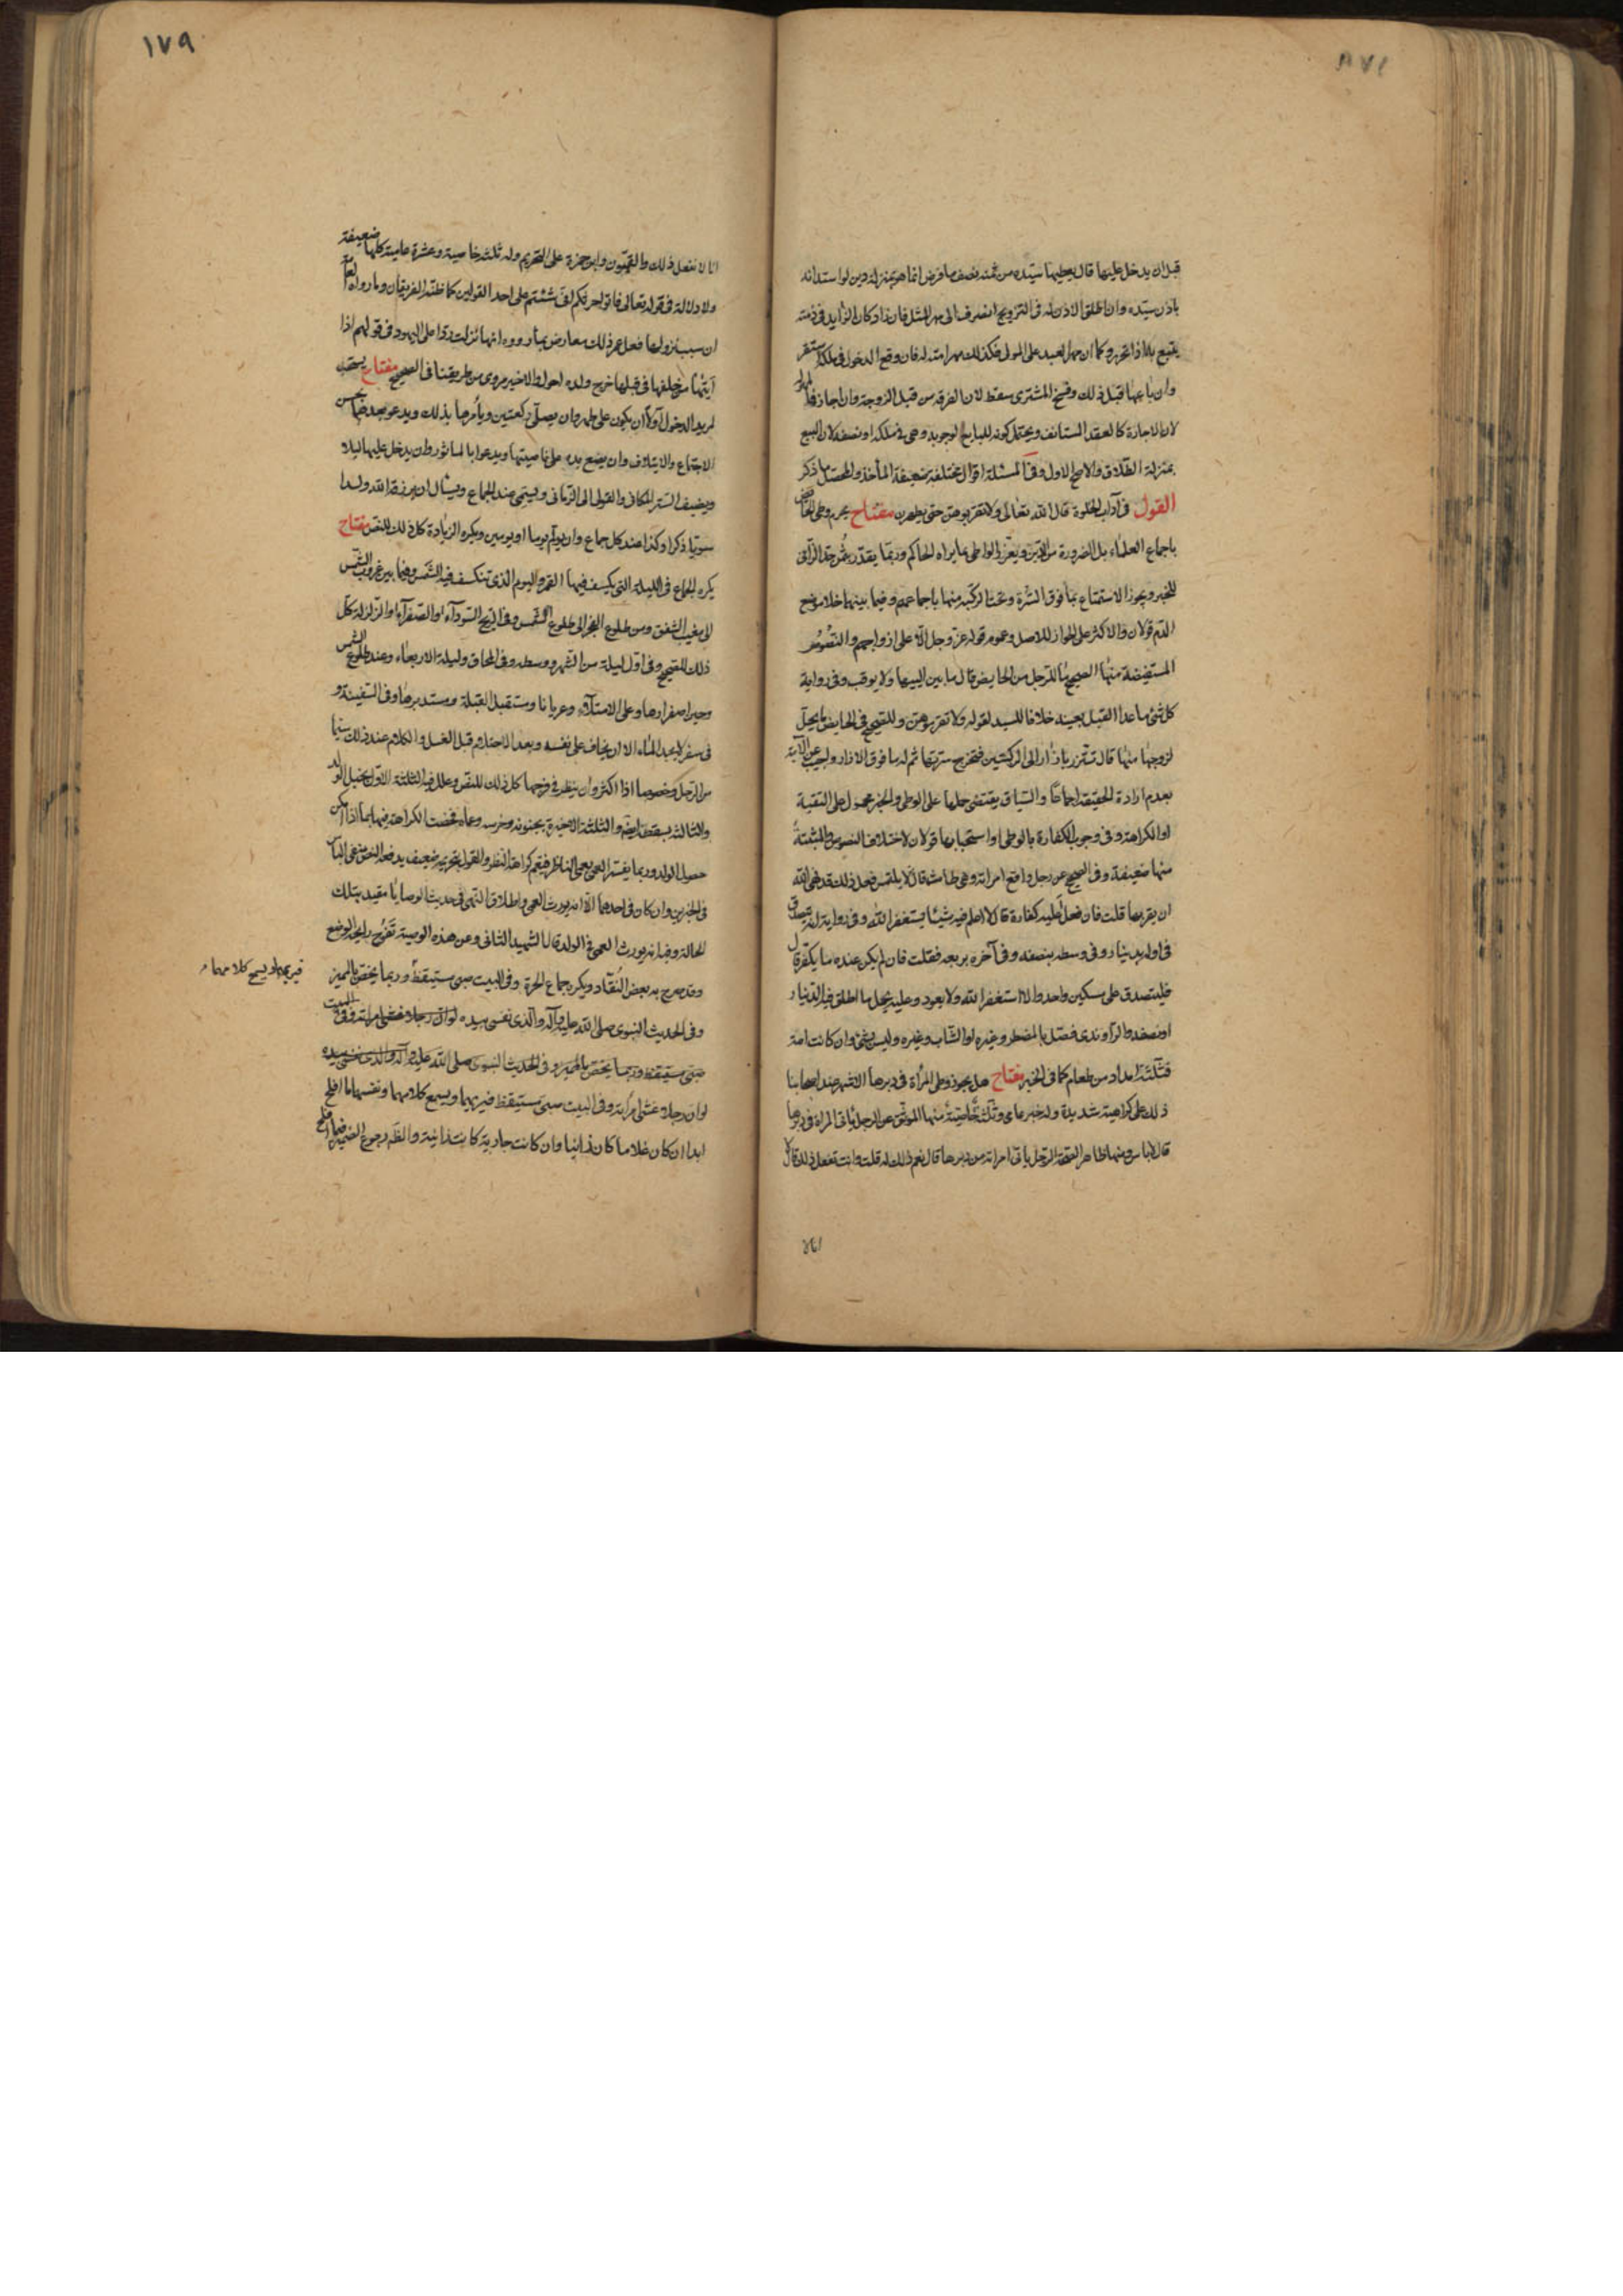 ١٧٨
قبل ان يدخل عليها قال يعطيها سيّده من ثمنه نصف ما فرض انما هو بمنزلة دين لو استدانه
باذن سيّده وان اطلق الاذن له فى التزويج انصرف الى مهر المثل فان زاد كان الزايد فى ذمته
يتبع به اذا تحرر وكما ان مهر العبد على المولى فكذلك مهر امته له فان وقع الدخول فى ملكه استقر
وان باعها قبل ذلك وفسخ المشترى سقط لان الفرقة من قبل الزوجة وان اجاز فله المهر
لان الاجازة كالعقد المستانف ويحتمل كونه للبايع لوجوبه وهى فى ملكه او نصفه لان البيع
بمنزلة الطلاق والاصح الاول وفى المسئلة اقوال مختلفة ضعيفة المأخذ والمحصّل ما ذكر
القول فى آداب الخلوة قال الله تعالى ولا تقربوهن حتى يطهرن مفتاح يحرم وطى الحائض
باجماع العلماء بل الضرورة من الدّين ويعزّر الواطى بما يراه الحاكم وربّما يقدّر بثمن حدّ الزّانى
للخبر ويجوز الاستمتاع بما فوق السّرة وتحت الركبة منها باجماعهم وفيما بينهما خلا موضع
الدّم قولان والاكثر على الجواز للاصل وعموم قوله عزّ وجل الّا على ازواجهم والنّصوص
المستفيضة منها الصحيح ما للرّجل من الحايض قال ما بين اليتيها ولا يوقب وفى رواية
كل شئ ما عدا القبل بعينه خلافا للسيد لقوله ولا تقربوهن وللصّحيح فى الحايض ما يحلّ
لزوجها منها قال تتّزر بازار الى الركبتين فتخرج سرّتها ثم له ما فوق الازار واجيب عن الآية
بعدم ارادة الحقيقة اجماعا والسّياق يقتضى حملها على الوطى والخبر محمول على التقية
او الكراهة وفى وجوب الكفارة بالوطى او استحبابها قولان لاختلاف النصوص والمثبتة
منها ضعيفة وفى الصحيح عن رجل واقع امراته وهى طامث قال لا يلتمس فعل ذلك قد نهى الله
ان يقربها قلت فان فعل أعليه كفارة قال لا اعلم فيه شيئا يستغفر الله وفى رواية انه يتصدّق
فى اوله بدينار وفى وسطه بنصفه وفى آخره بربعه فقلت فان لم يكن عنده ما يكفّر قال
فليتصدق على مسكين واحد والا استغفر الله ولا يعود وعليه يحمل ما اطلق فيه الدّينار
او نصفه والرّاوندى فصّل بالمضطر وغيره او الشّاب وغيره وليس بشئ وان كانت امة
فثلثة امداد من طعام كما فى الخبر مفتاح هل يجوز وطى المرأة فى دبرها الاشهر عند اصحابنا
ذلك على كراهية شديدة وله خبر عامى وثلثة خاصّية منها الموثّق عن الرجل يأتى المراة فى دبرها
قال لا باس ومنها ظاهر الصّحة الرّجل ياتى امراته من دبرها قال نعم ذلك له قلت وانت تفعل ذلك قال لا
انا لا
١٧٩
انا لا نفعل ذلك والقمّيون وابن حمزة على التحريم وله ثلثة خاصية وعشرة عامية كلها ضعيفة
ولا دلالة فى قوله تعالى فاتوا حرثكم انّى شئتم على احد القولين كما ظنّه الفريقان وما رواه العامّة
ان سبب نزولها فعل عمر ذلك معارض بما رووه انها نزلت ردّا على اليهود فى قولهم اذا
أتيتها من خلفها فى قبلها خرج ولده احول والاخير مروى من طريقنا فى الصحيح مفتاح يستحب
لمريد الدخول اولا ان يكون على طهر وان يصلّى ركعتين ويأمرها بذلك ويدعو بعدهما بحسن
الاجتماع والايتلاف وان يضع يده على ناصيتها ويدعوا بالماثور وان يدخل عليها ليلا
ويضيف السّتر المكانى والقولى الى الزّمانى ويسمّى عند الجماع ويسأل ان يرزقه الله ولدا
سويّا ذكرا وكذا عند كل جماع وان يولم يوما او يومين ويكره الزيادة كل ذلك للنّص مفتاح
يكره الجماع فى الليلة التى يكسف فيها القمر واليوم الذى تنكسف فيه الشمس وفيما بين غروب الشّمس
الى مغيب الشفق ومن طلوع الفجر الى طلوع الشمس وفى الريح السّودآء او الصّفرآء او الزلزلة كلّ
ذلك للصّحيح وفى اوّل ليلة من الشّهر ووسطه وفى المحاق وليلة الاربعاء وعند طلوع الشمس
وحين اصفرارها وعلى الامتلآء وعريانا ومستقبل القبلة ومستدبرها وفى السّفينة و
فى سفر لا يجد الماء الا ان يخاف على نفسه وبعد الاحتلام قبل الغسل والكلام عند ذلك سيّما
من الرّجل وخصوصا اذا اكثر وان ينظر فى فرجها كل ذلك للنّص وعلل فيه الثلثة الاوّل بخبل الولد
والثالثة بسقطه ايضا والثلثة الاخيرة بجنونه وخرسه وعماه فخصّت الكراهة فيها بما اذا امكن
حصول الولد وربما يفسّر العمى بعمى الناظر فيعم كراهة النظر والقول بتحريمه ضعيف يدفعه النص بنفى الباس
فى الخبرين وان كان فى احدهما الّا انه يورث العمى واطلاق النّهى فى حديث الوصايا مقيد بتلك
الحالة وفيه انه يورث العمى فى الولد قال الشهيد الثانى وعن هذه الوصية تفوح رايحة الوضع
وقد صرح به بعض النّقاد ويكره جماع الحرة وفى البيت صبى مستيقظ وربما يخصّ بالمميز
وفى الحديث النبوى صلى الله عليه وآله والّذى نفسى بيده لو ان رجلا غشى امراته وفى البيت
صبى مستيقظ وربما يخصّ بالمميز وفى الحديث النبوى صلى الله عليه وآله والّذى نفسى بيده
لو ان رجلا غشى امراته وفى البيت صبى مستيقظ فيريهما ويسمع كلامهما ونفسهما ما افلح
ابدا ان كان غلاما كان زانيا وان كانت جارية كانت زانية والظّ رجوع الضمير فيما افلح
فيريهما ويسمع كلامهما